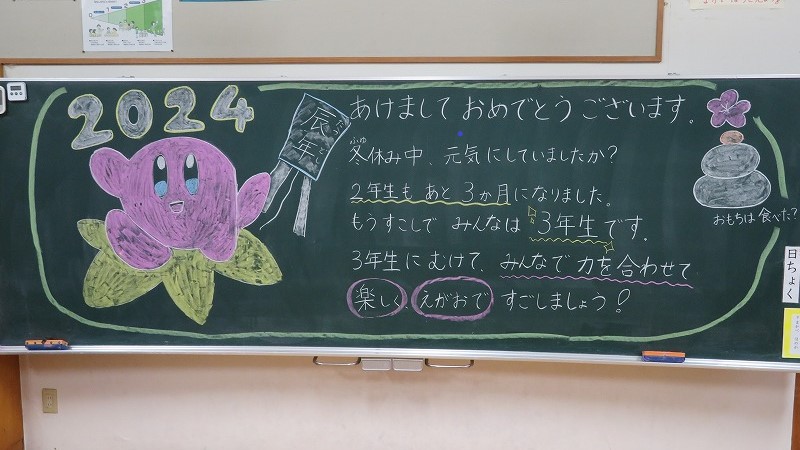 2024
辰年
たつどし
あけまして おめでとうございます。
ふゆ
冬休み中、元気にしていましたか？
2年生も あと 3か月になりました。
もうすこしで みんなは 3年生です。
3年生に むけて、みんなで 力を合わせて
楽しく、えがおで すごしましょう！
おもちは 食べた？
日ちょく